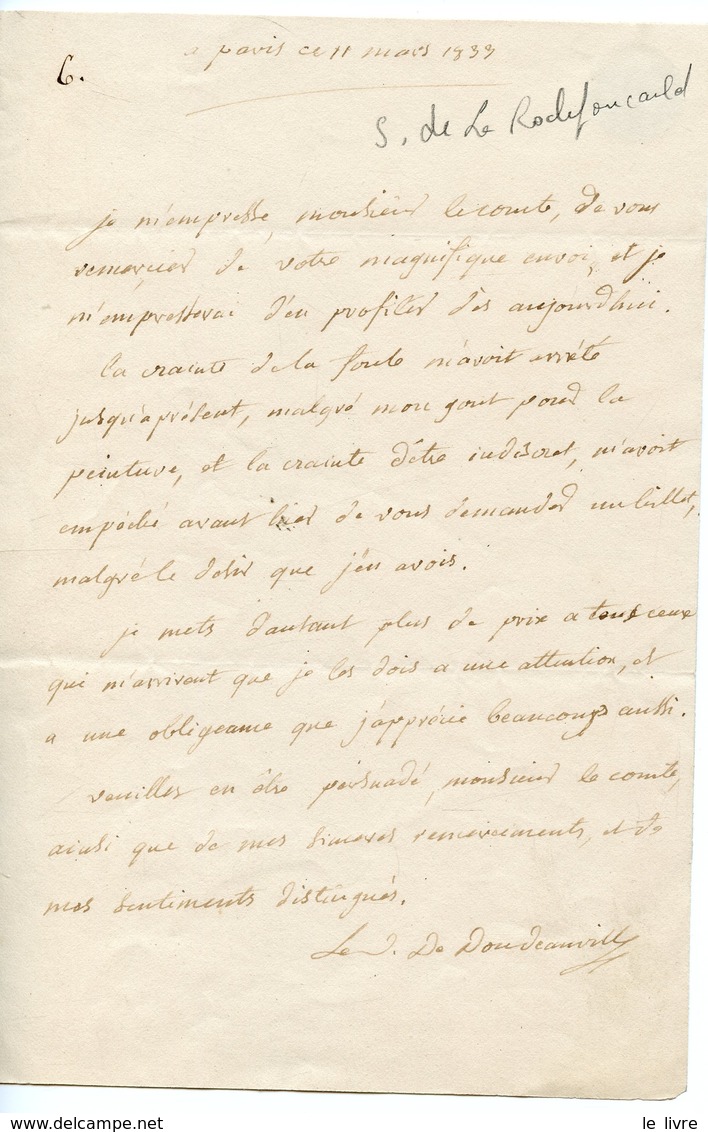 a paris ce 11 mars 1839
6.
S. de La Rochefoucauld
je m'empresse, monsieur le comte, de vous
remercier de votre magnifique envoi, et je
m'empresserai d'en profiter dès aujourd'hui.
la crainte de la foule m'avoit arrêté
jusqu'à présent, malgré mon gout pour la
peinture, et la crainte d'être indiscret, m'avoit
empêché avant hier de vous demander un billet,
malgré le désir que j'en avois.
je mets d'autant plus de prix a tous ceux
qui m'arrivent que je les dois a une attention, et
a une obligeance que j'apprécie beaucoup aussi.
veuillez en être persuadé, monsieur le comte,
ainsi que de mes sincères remerciements, et de
mes sentiments distingués.
Le d. de Doudeauville
le livre